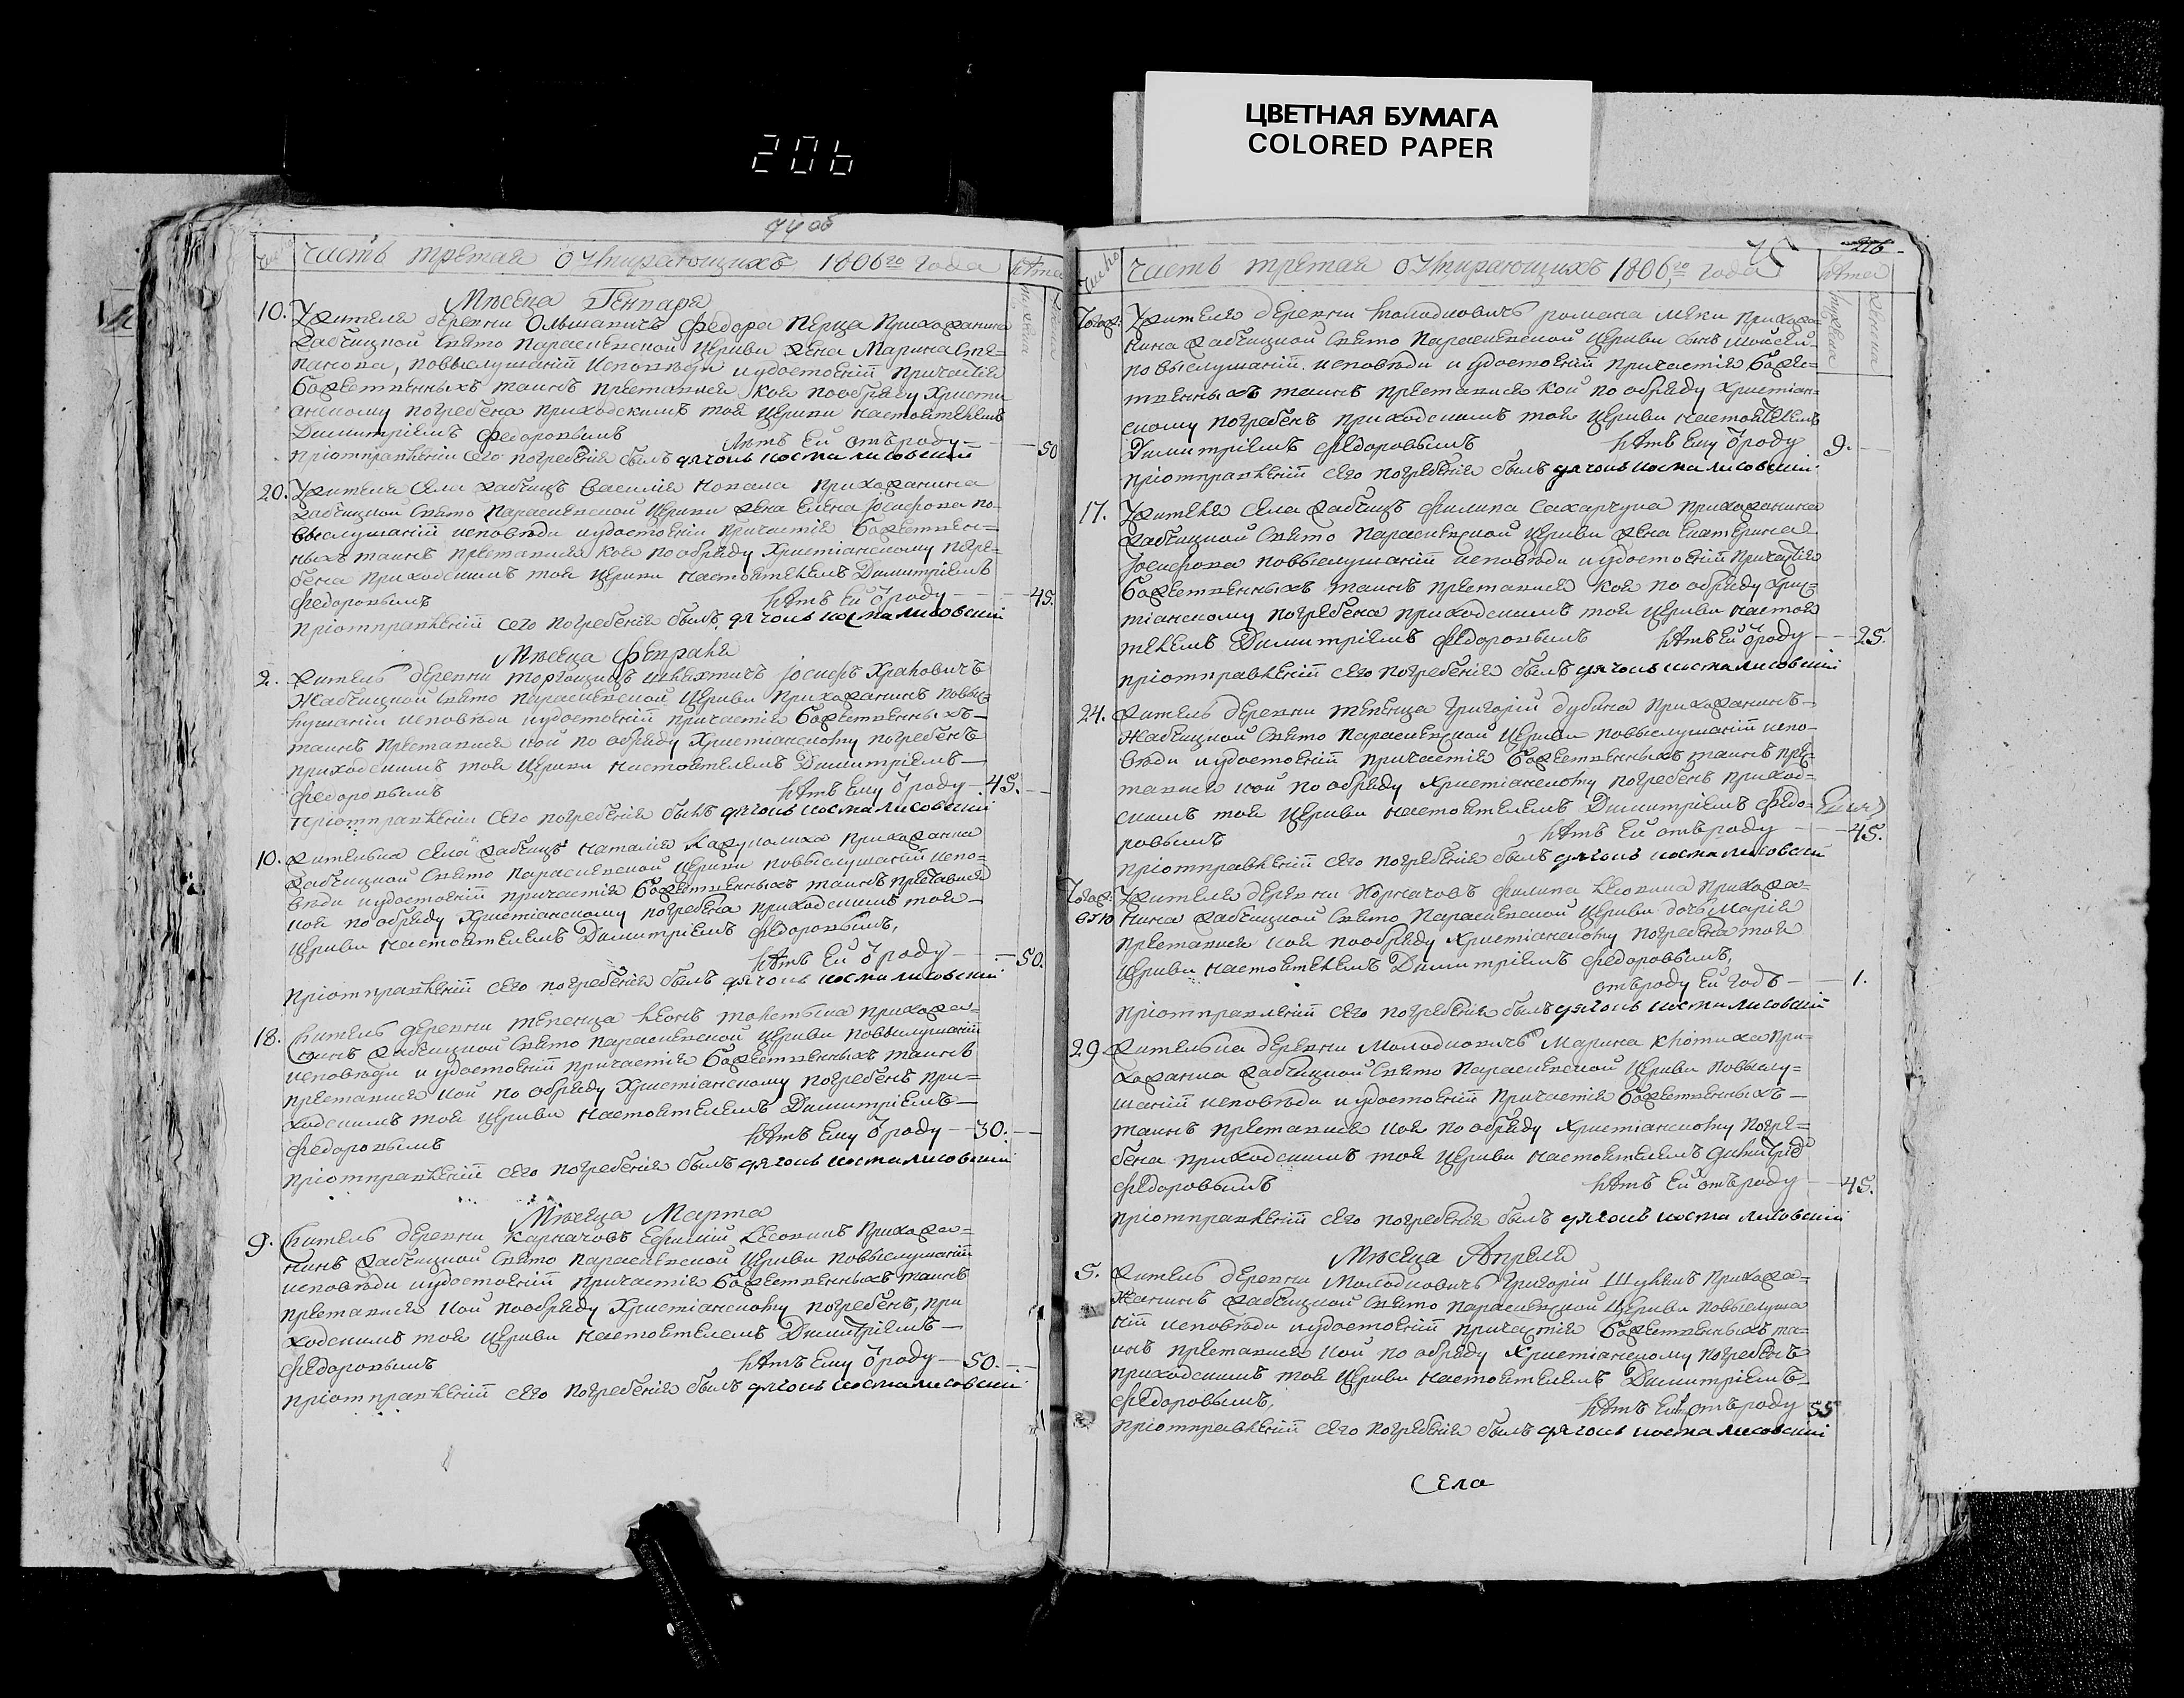 ЦВЕТНАЯ БУМАГА
COLORED PAPER
206
74 об
Число часть третая о Умирающихъ 1806го года лѣта
Мѣсеца Генваря
10. Жителя деревни Ольшаничъ Федора Перца Прихожанина
Жабчицкой Свято Параскевской Церкви жена Марина Сте-
панова, повыслушаніи Исповѣди иудостоеніи Причастія
Божественныхъ таинъ преставися коя пообряду Христи
анскому погребена приходскимъ тоя Церкви настоятелемъ
Димитріемъ Федоровымъ Лѣтъ Ей отъроду 50
Приотправленіи сего погребенія былъ дячокъ косма лисовскій
20. Жителя села жабчицъ Василія копала прихожанина
жабчицкой Свято Параскевской Церкви жена Елена Іосифова по
выслушаніи исповѣди иудостоеніи Причастія Божествен=
ныхъ таинъ преставися коя пообряду Христіанскому погре=
бена приходскимъ тоя Церкви настоятелемъ Димитріемъ
Федоровымъ лѣтъ Ей ѿроду 45.
Приотправленіи сего погребенія былъ дячокъ косма лисовскій
Мѣсеца Февраля
2. Житель деревни торгощицъ шляхтичъ Іосифъ Храновичъ
Жабчицкой Свято Параскевской Церкви Прихожанинъ повыс=
лушаніи исповѣди иудостоеніи причастія Божественныхъ
таинъ преставися кой по обряду Христіанскому погребенъ
приходскимъ тоя Церкви настоятелемъ Димитріемъ
Федоровымъ лѣтъ Ему ѿроду 45.
Приотправленіи сего погребенія былъ дячокъ косма лисовскій
10. Жителька села жабчицъ наталія прихожанка
жабчицкой Свято Параскевской Церкви повыслушаніи испо=
вѣди иудостоеніи причастія Божественныхъ таинъ преставися
коя по обряду Христіанскому погребена приходскимъ тоя
Церкви настоятелемъ Димитріемъ Федоровымъ,
лѣтъ Ей ѿроду 50.
Приотправленіи сего погребенія былъ дячокъ косма лисовскій
18. Житель деревни тепенца леонъ прихожа=
нинъ жабчицкой Свято Параскевской Церкви повыслушаніи
исповѣди и удостоеніи причастія Божественныхъ таинъ
преставися кой по обряду Христіанскому погребенъ при=
ходскимъ тоя Церкви настоятелемъ Димитріемъ
Федоровымъ лѣтъ Ему ѿроду 30.
Приотправленіи сего погребенія былъ дячокъ косма лисовскій
Мѣсеца Марта
9. Житель деревни Карначовъ Ефимій Лесовинъ Прихожа=
нинъ жабчицкой Свято Параскевской Церкви повыслушаніи
исповѣди иудостоеніи причастія Божественныхъ таинъ
преставися кой пообряду Христіанскому погребенъ, при
ходскимъ тоя Церкви настоятелемъ Димитріемъ
Федоровымъ лѣтъ Ему ѿроду 50.
Приотправленіи сего погребенія былъ дячокъ косма лисовскій
75 216
Число часть третая о Умирающихъ 1806го года лѣта
мужеска женска
Жителя деревни молодковичъ романа мени прихожа=
нина жабчицкой Свято Параскевской Церкви сынъ Моисей
по выслушаніи исповѣди и удостоеніи причастія Боже=
твенныхъ таинъ преставися кой по обряду Христіан=
скому погребенъ приходскимъ тоя Церкви настоятелемъ
Димитріемъ Федоровымъ лѣтъ Ему ѿроду 9.
Приотправленіи сего погребенія былъ дячокъ косма лисовскій
17. Жителя села жабчицъ филипа сахарчука прихожанина
жабчицкой Свято Параскевской Церкви жена Екатерина
Іосифова повыслушаніи исповѣди иудостоеніи причастія
Божественныхъ таинъ преставися коя по обряду Хрис=
тіанскому погребена приходскимъ тоя Церкви настоя
телемъ Димитріемъ Федоровымъ лѣтъ Ей ѿроду 25.
Приотправленіи сего погребенія былъ дячокъ косма лисовскій
24. Житель деревни тепенца Григорій дубина прихожанинъ
Жабчицкой Свято Параскевской Церкви повыслушаніи испо=
вѣди иудостоеніи причастія Божественныхъ таинъ пре=
тавися кой по обряду Христіанскому погребенъ приход=
скимъ тоя Церкви настоятелемъ Димитріемъ Федо=
ровымъ лѣтъ Ей отъроду 45.
Приотправленіи сего погребенія былъ дячокъ косма лисовскій
Жителя деревни Корначовъ филипа лесовина прихожа=
нина жабчицкой Свято Параскевской Церкви дочь Марія
преставися коя пообряду Христіанскому погребена тоя
Церкви настоятелемъ Димитріемъ Федоровымъ,
отъроду Ей годъ 1.
Приотправленіи сего погребенія былъ дячокъ косма лисовскій
29. Жителька деревни Молодковичъ Марина при=
хожанка жабчицкой Свято Параскевской Церкви повыслу=
шаніи исповѣди иудостоеніи причастія Божественныхъ
таинъ преставися коя по обряду Христіанскому погре=
бена приходскимъ тоя Церкви настоятелемъ димитріе
Федоровымъ лѣтъ Ей отъроду 45.
Приотправленіи сего погребенія былъ дячокъ косма лисовскій
Мѣсеца Апреля
5. Житель деревни Молодковичъ Григорій Шулякъ Прихожа=
жанинъ жабчицкой Свято Параскевской Церкви повыслуша
ніи исповѣди иудостоеніи причастія Божественныхъ та=
инъ преставися кой по обряду Христіанскому погребенъ
приходскимъ тоя Церкви настоятелемъ Димитріемъ
Федоровымъ, лѣтъ отъроду 55
Приотправленіи сего погребенія былъ дячокъ косма лисовскій
Села